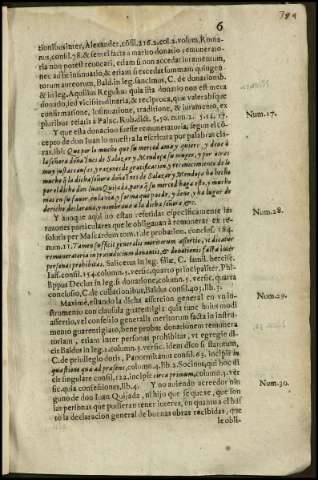 6
789
tionibus inter, Alexander, consil. 216. 2. col. 2. volum. Roma-
nus, consil. 78. & semel facta à marito donatio remunerato-
ria non potest reuocari, etiam si non accedat iuramentum,
nec adsit insinuatio, & etiam si excedat summam quingen-
torum aureorum, Bald. in leg. sancimus, C. de donationib.
& in leg. Aquilius Regulus: quia ista donatio non est mera
donatio, sed vicissitudinaria, & reciproca, quæ valet absque
confirmatione, insinuatione, traditione, & iuramento, ex
pluribus relatis à Palac. Rub. dict. §. 50. num. 2.
Y que esta donacion fuesse remuneratoria, segun el co-
cepto de don Iuan lo muestra la escritura por palabras cla-
ras, ibi: Que por lo mucho que su merced ama y quiere, y deue à
la señora doña Ines de Salazar y Mendoza su muger, y por otras
muy justas causas, y razones de gratificacion, y reconocimiento de lo
mucho q̃ la dicha señora doña Ines de Salazar y Mendoza ha hecho
por el dicho don Iuan Quijada, para q̃ su merced haga esto, y mucho
mas en su fauor, en la via y forma que puede, y deue, y ha lugar de
derecho declara, y nombra à la dicha señora, &c.
Num. 27.
Y aunque aqui no estan referidas especificamente las
razones porticulares que le obligauan à remunerar ex re-
solutis per Mascardum tom. 1. de probation. conclus. 184.
num. 11. Tamen sufficit generalis meritorum assertio, vt dicatur
remuneratoria in præiudicium donantis, & donationis factæ inter
personas prohibitas. Salicetus in leg. filiæ, C. famil. hercisc.
Iass. consil. 154. column. 5. versic. quarto principaliter, Phi-
lippus Decius in leg. si donatione, column. 5. versic. quarta
conclusio, C. de collationibus, Baldus consil. 403. lib. 3.
Num. 28.
Maximè, estando la dicha assercion general en vn in-
strumento con clausula guarentigia: quia tunc huiusmodi
assertio, vel confessio generalis meritorum facta in instru-
mento guarentigiato, bene probat donationem remunera-
toriam, etiam inter personas prohibitas, vt egregie di-
cit Baldus in leg. 1. column. 3. versic. idem dico si statutum,
C. de priuilegio dotis, Panormitanus consil. 63. incipit in
quæstione quæ ad præsens, column. 4. lib. 2. Socinus, qui hoc di-
cit singulare consil. 122. incipit circa primum, column. 4. ver-
sic. quia confessiones, lib. 4. Y no auiendo acreedor nin-
guno de don Iuan Quijada, ni hijo que se quexe, que son
las personas que pudieran tener interes, en quanto à el bas-
tò la declaracion general de buenas obras recibidas, que
Num. 29.
Num. 30.
le obli-